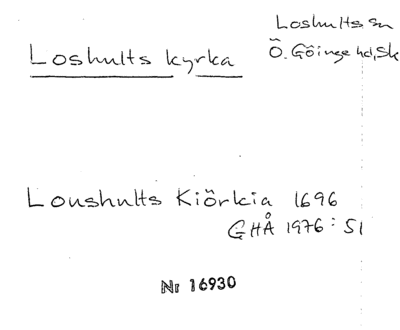 Loshults sn
Loshults kyrka
Ö. Göinge hd, Sk
Loushults Kiörkia 1696
GHÅ 1976: 51
Nr 16930